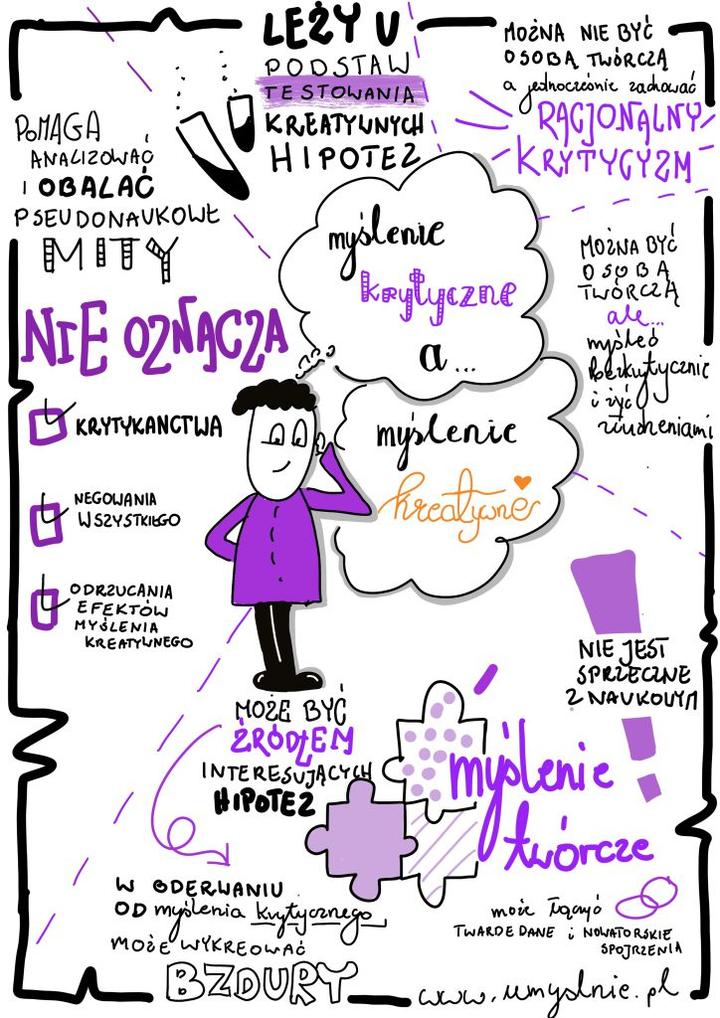 LEŻY U
PODSTAW
TESTOWANIA
KREATYWNYCH
HIPOTEZ
MOŻNA NIE BYĆ
OSOBĄ TWÓRCZĄ
a jednocześnie zachować
RACJONALNY
KRYTYCYZM
POMAGA
ANALIZOWAĆ
I OBALAĆ
PSEUDONAUKOWE
MITY
myślenie
krytyczne
a...
myślenie
kreatywne
MOŻNA BYĆ
OSOBĄ
TWÓRCZĄ
ale...
myśleć
bezkrytycznie
i żyć
złudzeniami
NIE OZNACZA
KRYTYKANCTWA
NEGOWANIA
WSZYSTKIEGO
ODRZUCANIA
EFEKTÓW
MYŚLENIA
KREATYWNEGO
NIE JEST
SPRZECZNE
Z NAUKOWYM
MOŻE BYĆ
ŹRÓDŁEM
INTERESUJĄCYCH
HIPOTEZ
myślenie
twórcze
W ODERWANIU
OD myślenia krytycznego
MOŻE WYKREOWAĆ
BZDURY
może łączyć
TWARDE DANE i NOWATORSKIE
SPOJRZENIA
www.umyslnie.pl